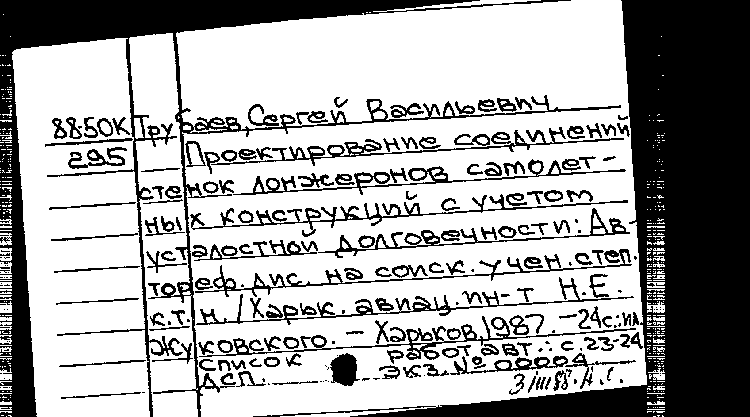 88-50К Трубаев, Сергей Васильевич.
295 Проектирование соединений
стенок лонжеронов самолет-
ных конструкций с учетом
усталостной долговечности: Ав-
тореф. дис. на соиск. учен. степ.
к.т.н. /Харьк. авиац. ин-т Н.Е.
Жуковского. – Харьков, 1987. – 24с.: ил.
Список работ авт.: с. 23-24
ДСП. Экз. № 00004